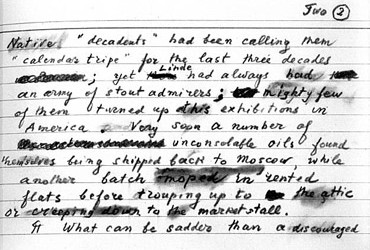 Two ②
Native "decadents" had been calling them
"calendar tripe" for the last three decades
; yet Linde had always had
an army of stout admirers; mighty few
of them turned up this exhibitions in
America Very soon a number of
unconsolable oils found
themselves being shipped back to Moscow, while
another batch moped in rented
flats before trouping up to the attic
or creeping down to the marketstall.
¶ What can be sadder than a discouraged